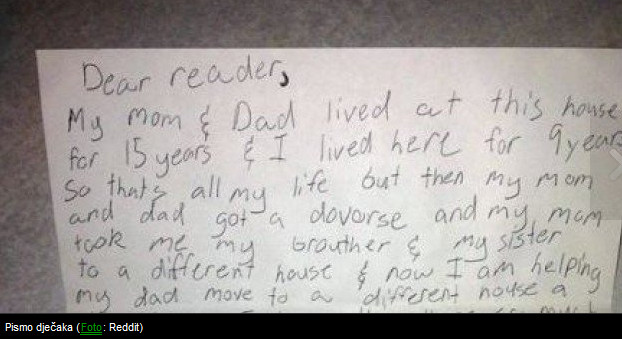 Dear reader,
My mom & Dad lived at this house
for 15 years & I lived here for 9 years
So thats all my life but then my mom
and dad got a dovorse and my mom
took me my brouther & my sister
to a different house & now I am helping
my dad move to a different house a
Pismo dječaka (Foto: Reddit)